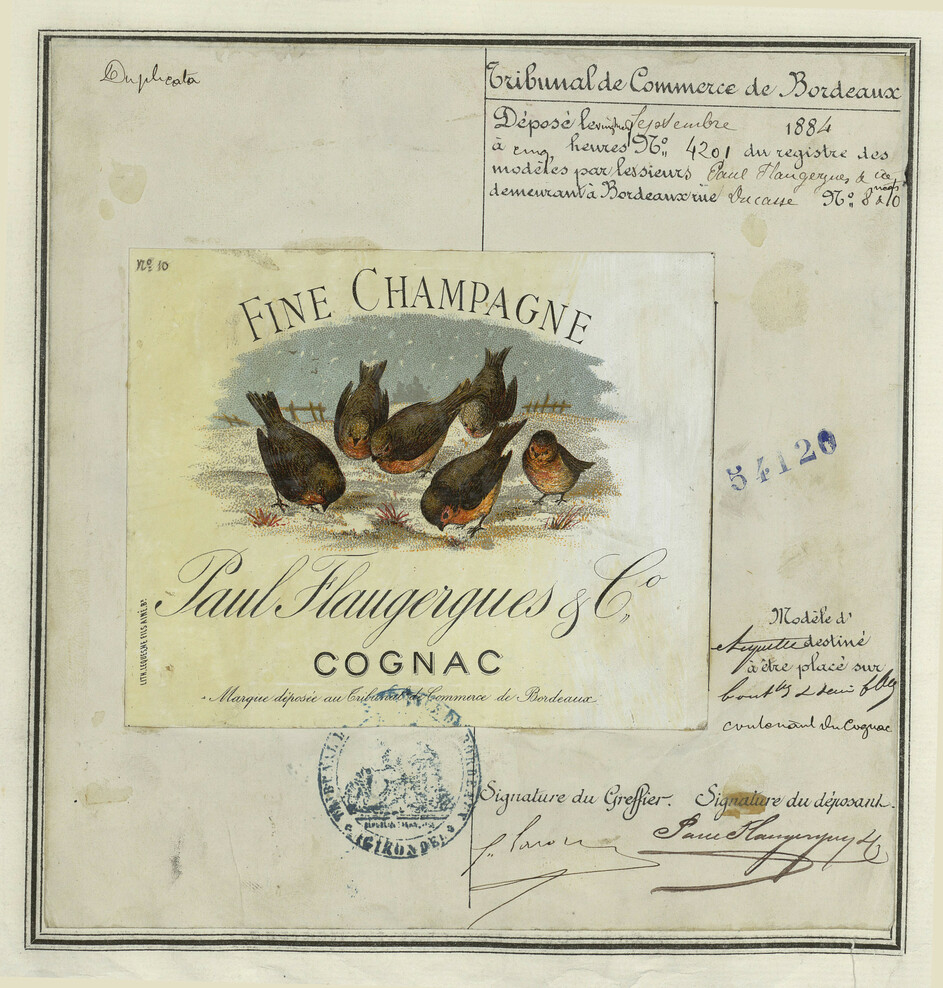 Duplicata
Tribunal de Commerce de Bordeaux
Déposé le Septembre 1884
à cinq heures No. 4201 du registre des
modèles par les sieurs Paul Flaugergues & Cie
demeurant à Bordeaux rue Ducasse No. 8 & 10
No. 10
FINE CHAMPAGNE
Paul Flaugergues & Co.,
COGNAC
Marque déposée au Tribunal de Commerce de Bordeaux
54120
Modèle d'
étiquette destiné
à être placé sur
contenant du Cognac
(GIRONDE)
Signature du Greffier. Signature du déposant.
Paul Flaugergues